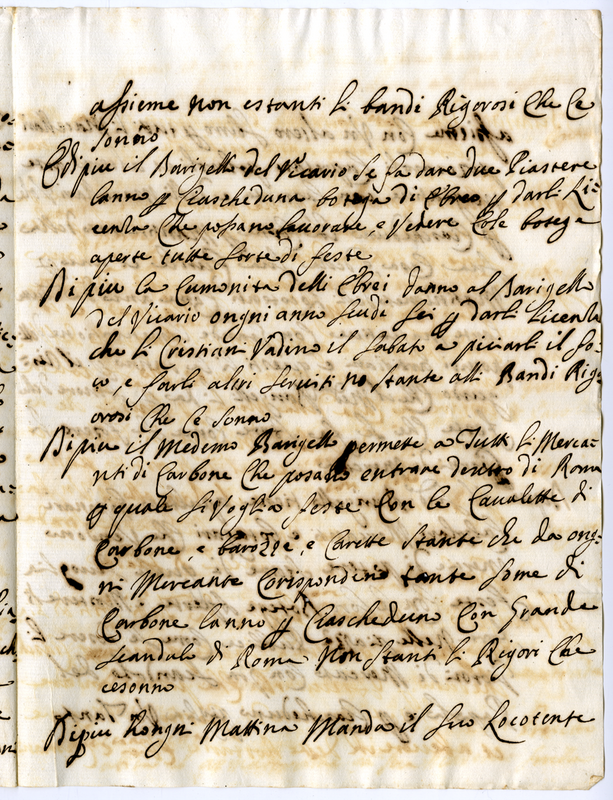 assieme non estanti li bandi Rigorosi che ce
sonno
Di piu il Barigell del Vicario se fa dare due Piastere
lanno p Ciascheduna botega di Ebreo p darli Li=
cenza che possano lavorare, e Venere Cole botega
aperte tutte sorte di feste
Di piu la Cumonita delli Ebrei danno al Barigell
del Vicario ongni anno scudi sei p darli licenza
che li Cristiani Vadino il Sabato a piciarli il fo=
co, e farli altri serviti no stante alli Bandi Rig=
orosi che ce sonno
Di piu il Medemo Barigell permete a Tutti li Merca=
nti di Carbone che posano entrare dentro di Roma
p quale si Voglia feste Con le Cavalette di
Carbone, e barozze, e Carette stante che da ong=
ni Mercante Corispondino tante some di
Carbone lanno p Ciascheduno Con Grande
scandalo di Roma Non stanti li Rigori che
cesonno
Di piu hongni Mattina Manda il suo Locotente